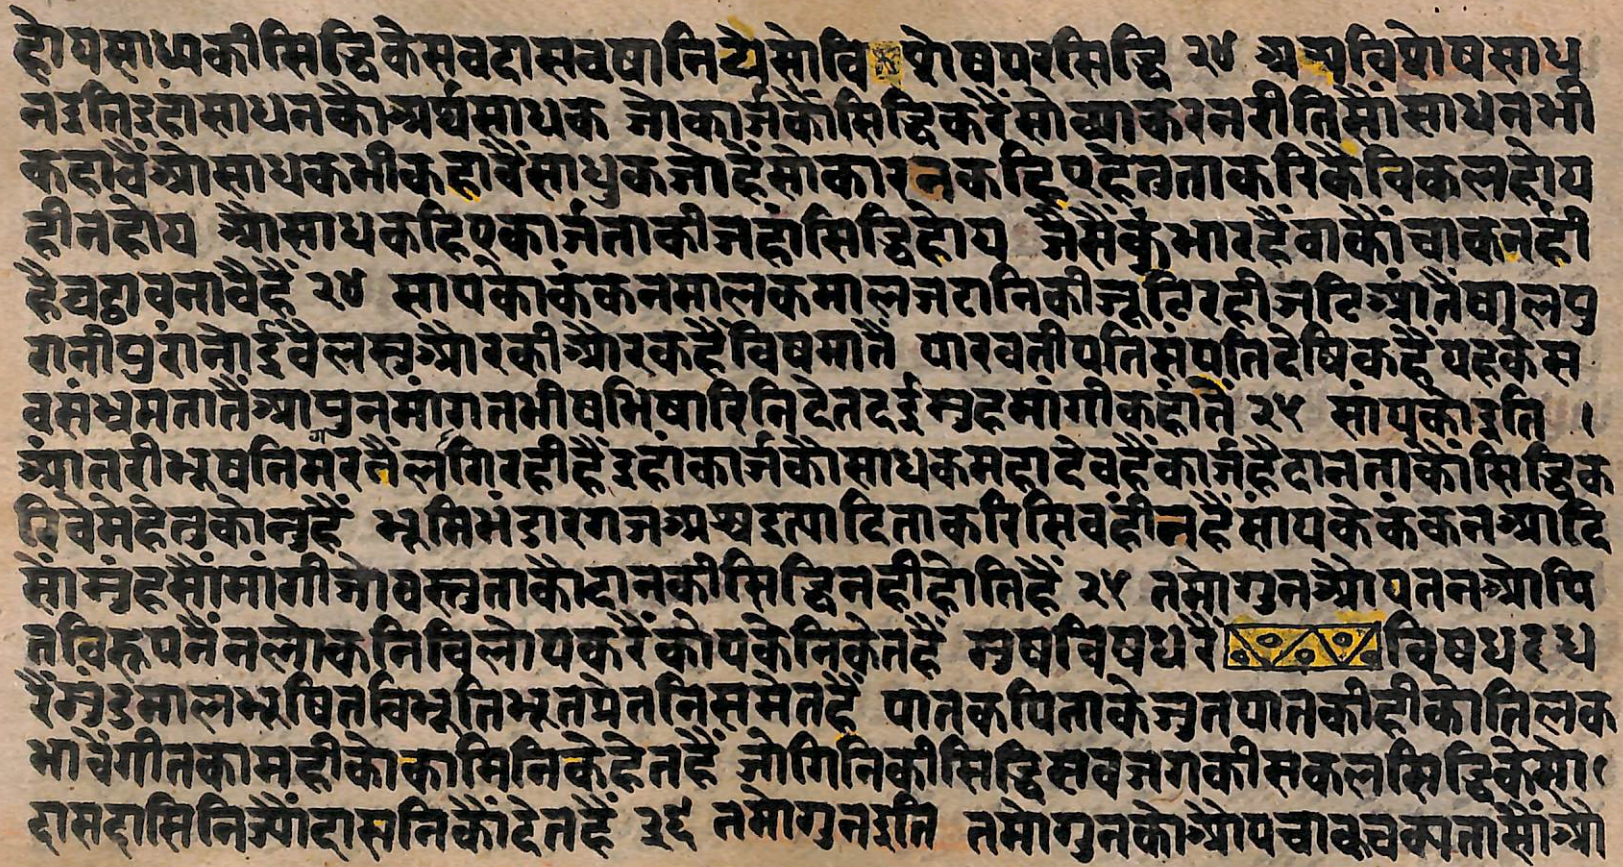 होय साध्य की सिद्धि केसवदास वषानियै सो विसेष पर सिद्धि २४ अथ विसेष साध
न इति इहां साधन कौ अर्थ साधक जो कार्ज कौं सिद्धि करैं सो व्याकरन रीति सौं साधन भी
कहावैं औ साधक भी कहावैं साधक जो हैं सो कारन कहिए हेतु ता करिकै विकल होय
हीन होय औ साधक हिए कार्ज ता की जहां सिद्धि होय जैसैं कुंभार हैं वा कौं चाक नहीं
है घट्टा वनावै हैं २४ सापको कंकन माल कमाल जटानि की जूटि रही जटि आंतैं षाल पु
रानी पुरानोई वैलसु और की और कहैं विष मातैं पारवती पति संपति देषि कहैं यह केस
व संभ्रम तातैं आपुन मांगत भीष भिषारिनि देत दई मुह मांगी कहांतै २५ सांपको इति ।
आंत री भूषनि मर तैं लगि रही हैं इहां कार्ज कौ साधक महादेव हैं कार्ज है दान ता कौं सिद्धि क
रिवे मे हेतु को नु हैं भूमि भंडार गज अश्व इत्यादि ता करि सिव हीन हैं सांप के कंकन आदि
सौं मुंह सौं मांगी जो वस्तु ता कौ दान की सिद्धि नही होति हैं २५ तमोगुन ओप तन ओपि
त विरूप नैन लोकनि विलोप करैं कोप के निकेत हैं मुष विष धरैं विषधर ध
रैं मुंडमाल भूषित विभूति भूत प्रेतनि समेत हैं पातक पिता के जुत पातकी ही को तिलक
भावैं गीत काम ही को कामिनि के हेत हैं जोगिनि की सिद्धि सव जग की सकल सिद्धि केसो।
दास दासि नि ज्यौं दासनि कौं देत हैं २६ तमोगुन इति तमोगुन को ओप चाकचक्य ता सौं ओ